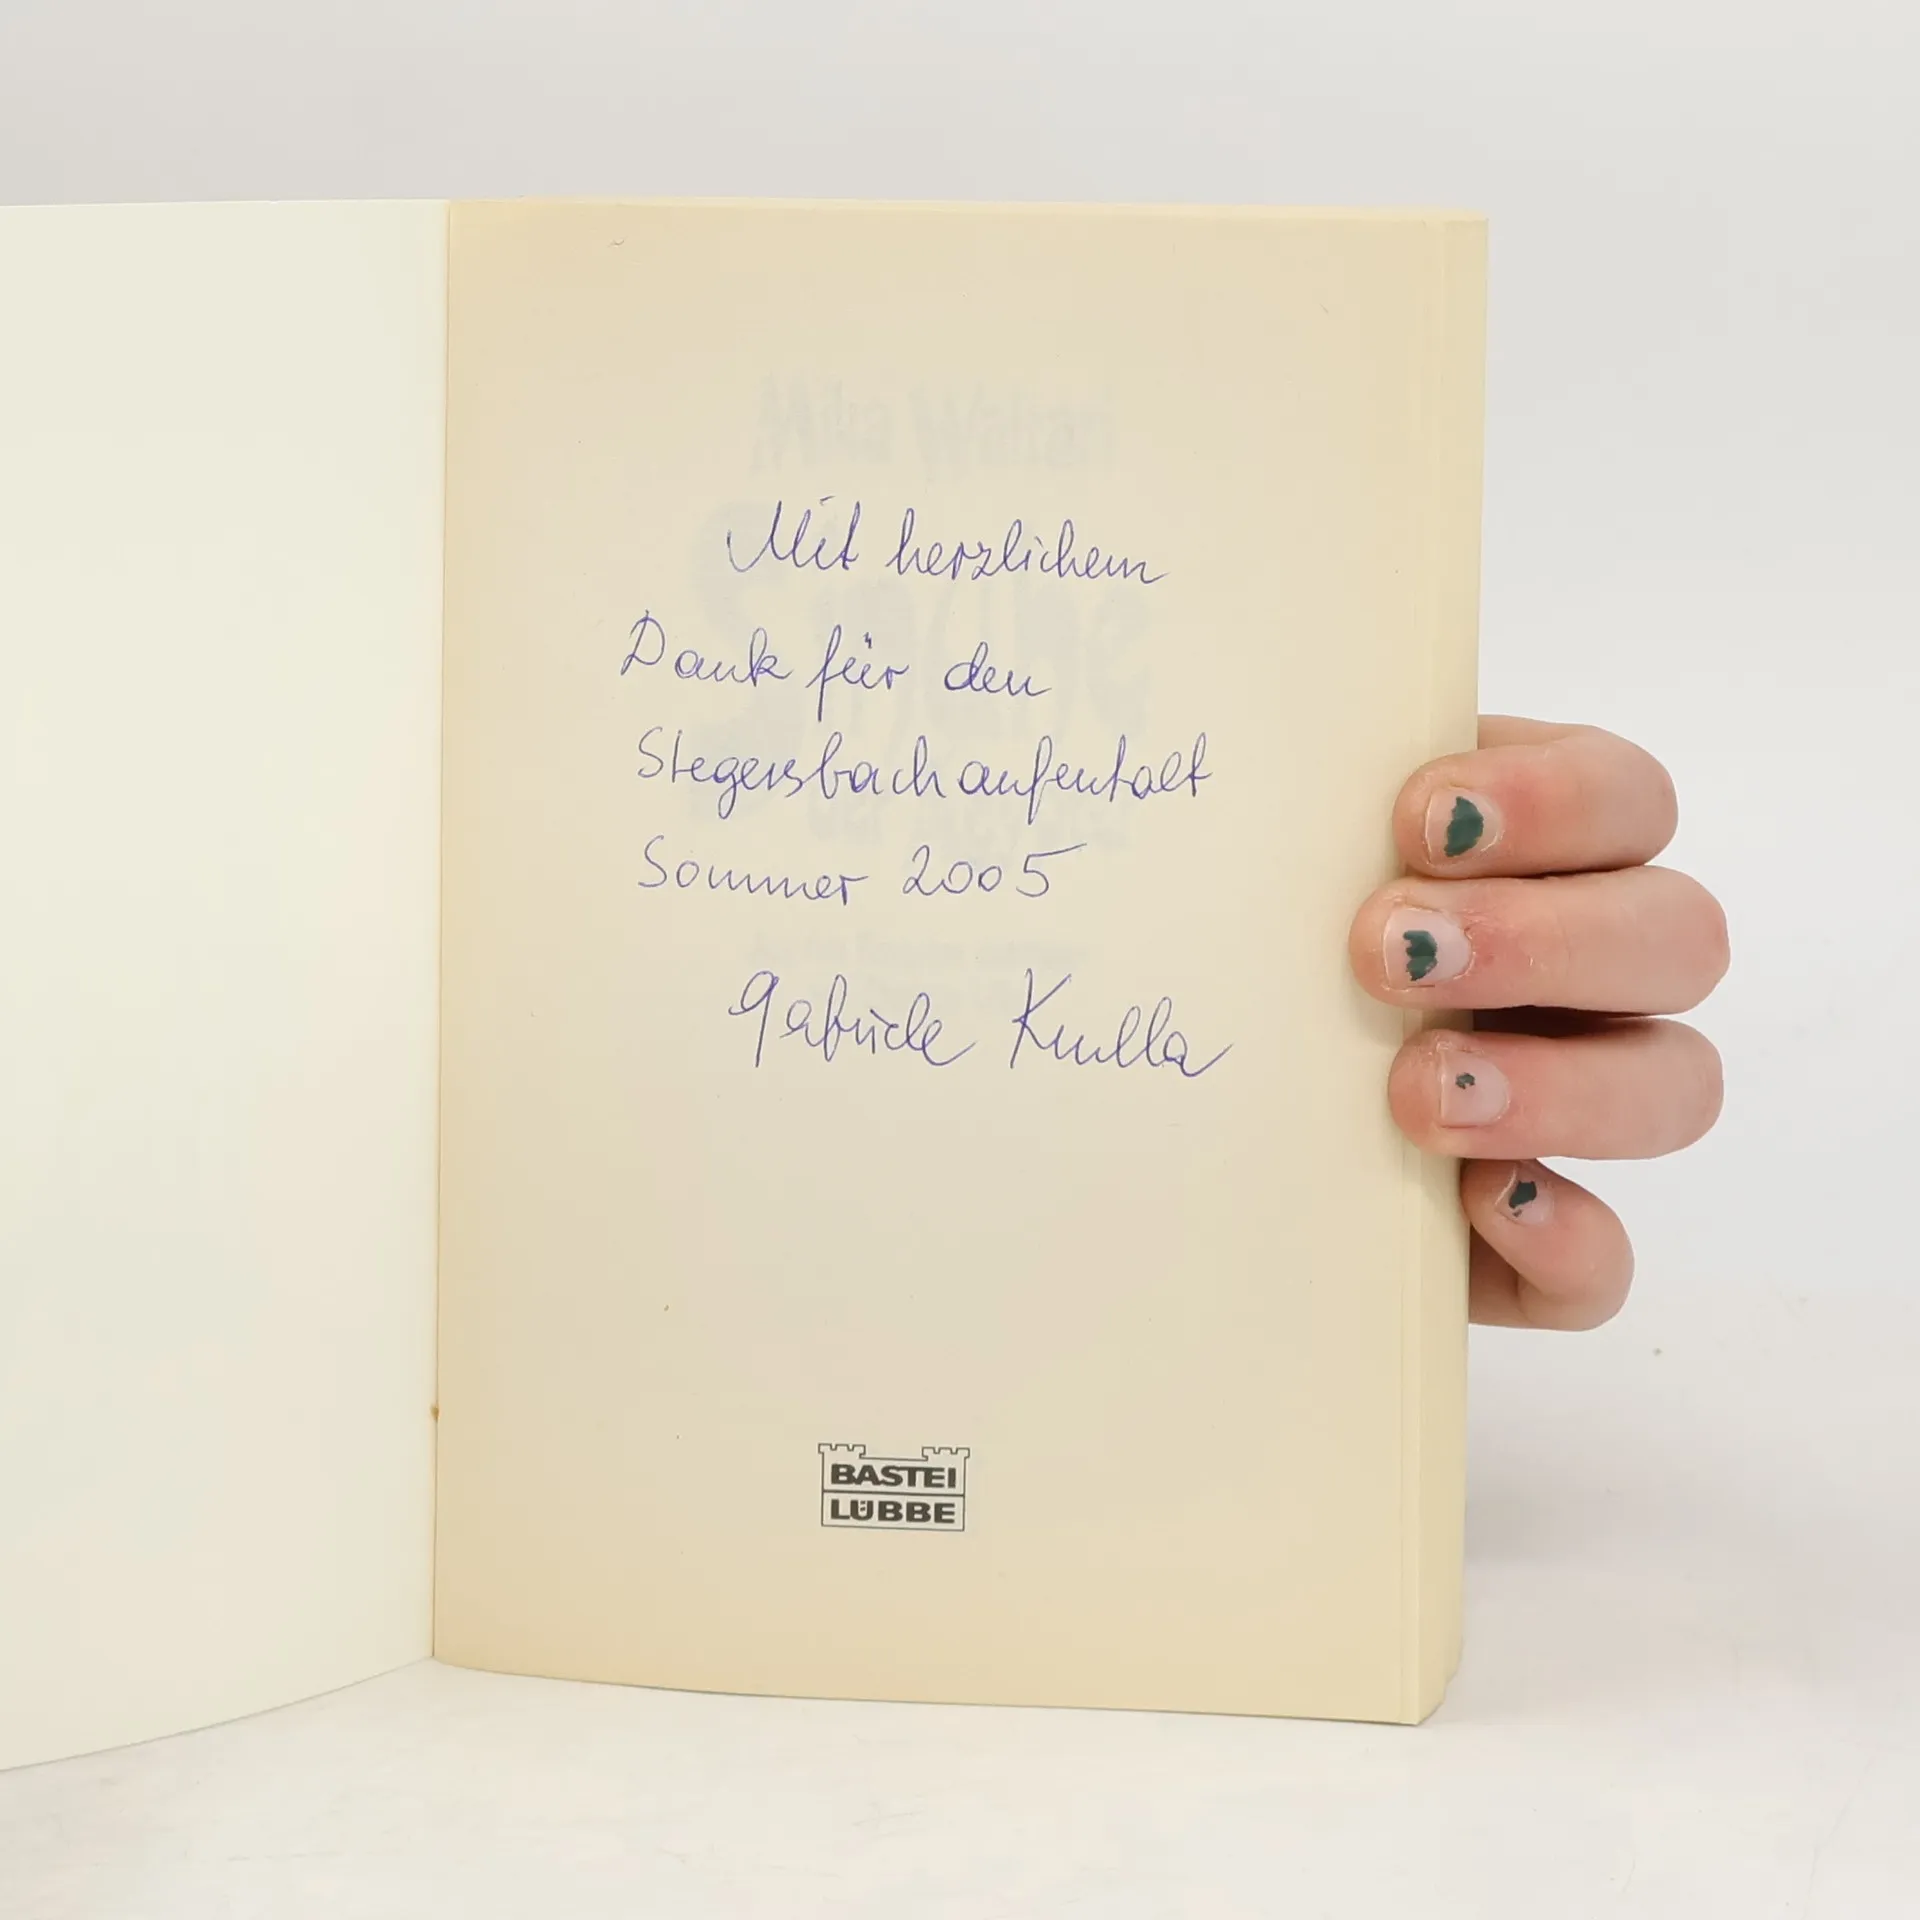 Mit herzlichem
Dank für den
Stegersbachaufenthalt
Sommer 2005
Gabriele Krulla
BASTEI
LÜBBE